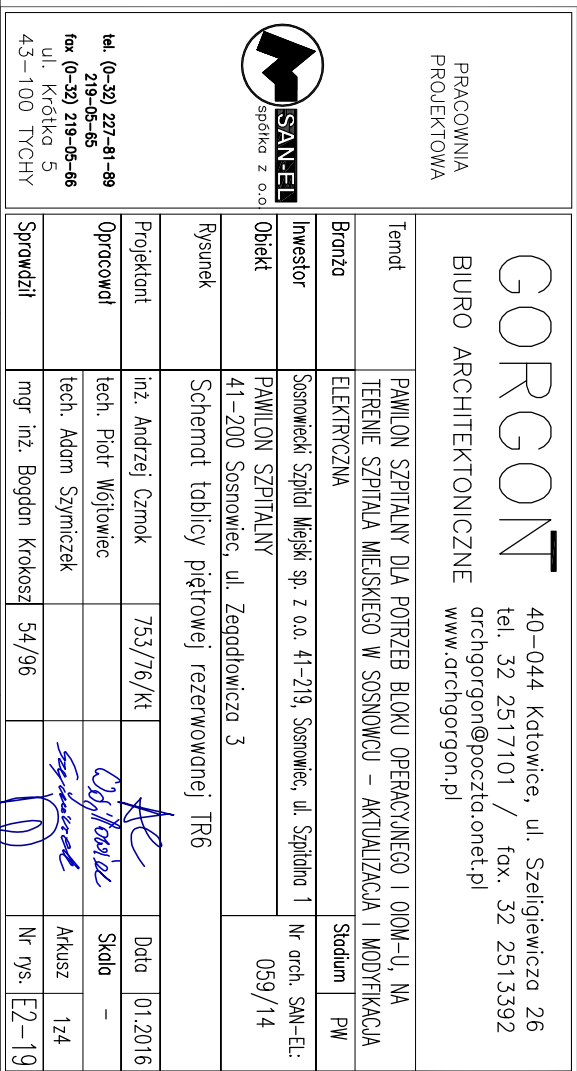 PRACOWNIA
PROJEKTOWA
SAN-EL
spółka z o.o.
tel. (0-32) 227-81-89
219-05-65
fax (0-32) 219-05-66
ul. Krótka 5
43-100 TYCHY
GORGON
BIURO ARCHITEKTONICZNE
40-044 Katowice, ul. Szeligiewicza 26
tel. 32 2517101 / fax. 32 2513392
archgorgon@poczta.onet.pl
www.archgorgon.pl
Temat PAWILON SZPITALNY DLA POTRZEB BLOKU OPERACYJNEGO I OIOM-U, NA
TERENIE SZPITALA MIEJSKIEGO W SOSNOWCU - AKTUALIZACJA I MODYFIKACJA
Branża ELEKTRYCZNA Stadium PW
Inwestor Sosnowiecki Szpital Miejski sp. z o.o. 41-219, Sosnowiec, ul. Szpitalna 1 Nr arch. SAN-EL:
059/14
Obiekt PAWILON SZPITALNY
41-200 Sosnowiec, ul. Zegadłowicza 3
Rysunek Schemat tablicy piętrowej rezerwowanej TR6
Projektant inż. Andrzej Czmok 753/76/Kt Data 01.2016
Opracował tech. Piotr Wójtowiec Wójtowiec Skala -
tech. Adam Szymiczek Szymiczek Arkusz 1z4
Sprawdził mgr inż. Bogdan Krokosz 54/96 Nr rys. E2-19